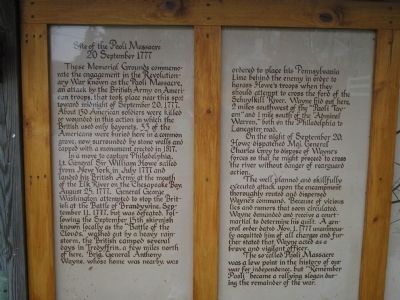 Site of the Paoli Massacre
20 September 1777
These Memorial Grounds commemo-
rate the engagement in the Revolution-
ary War known as the Paoli Massacre,
an attack by the British Army on Ameri-
can troops, that took place near this spot
toward midnight of September 20, 1777.
About 150 American soldiers were killed
or wounded in this action in which the
British used only bayonets. 53 of the
Americans were buried here in a common
grave, now surrounded by stone walls and
capped with a monument erected in 1817.
In a move to capture Philadelphia,
Lt. General Sir William Howe sailed
from New York in July 1777 and
landed his British Army at the mouth
of the Elk River on the Chesapeake Bay,
August 25, 1777. General George
Washington attempted to stop the Brit-
ish at the Battle of Brandywine, Sep-
tember 11, 1777, but was defeated. Fol-
lowing the September 15th skirmish
known locally as the "Battle of the
Clouds," washed out by a heavy rain-
storm, the British camped several
days in Tredyffrin, a few miles north
of here. Brig. General Anthony
Wayne, whose home was nearby, was
ordered to place his Pennsylvania
Line behind the enemy in order to
harass Howe's troops when they
should attempt to cross the ford of the
Schuylkill River. Wayne hid out here,
2 miles southwest of the "Paoli Tav-
ern" and 1 mile south of the "Admiral
Warren," both on the Philadelphia to
Lancaster road.
On the night of September 20,
Howe dispatched Maj. General
Charles Grey to dispose of Wayne's
forces so that he might proceed to cross
the river without danger of rearguard
action.
The well planned and skillfully
executed attack upon the encampment
thoroughly routed and dispersed
Wayne's command. Because of vicious
lies and rumors that soon circulated
Wayne demanded and receive a court-
martial to determine his guilt. A gen-
eral order dated Nov. 1, 1777 unanimous-
ly acquitted him of all charges and fur-
ther stated that Wayne acted as a
brave and vigilant officer.
The so-called Paoli Massacre
was a low point in the history of our
war for independence, but "Remember
Paoli" became a rallying slogan dur-
ing the remainder of the war.